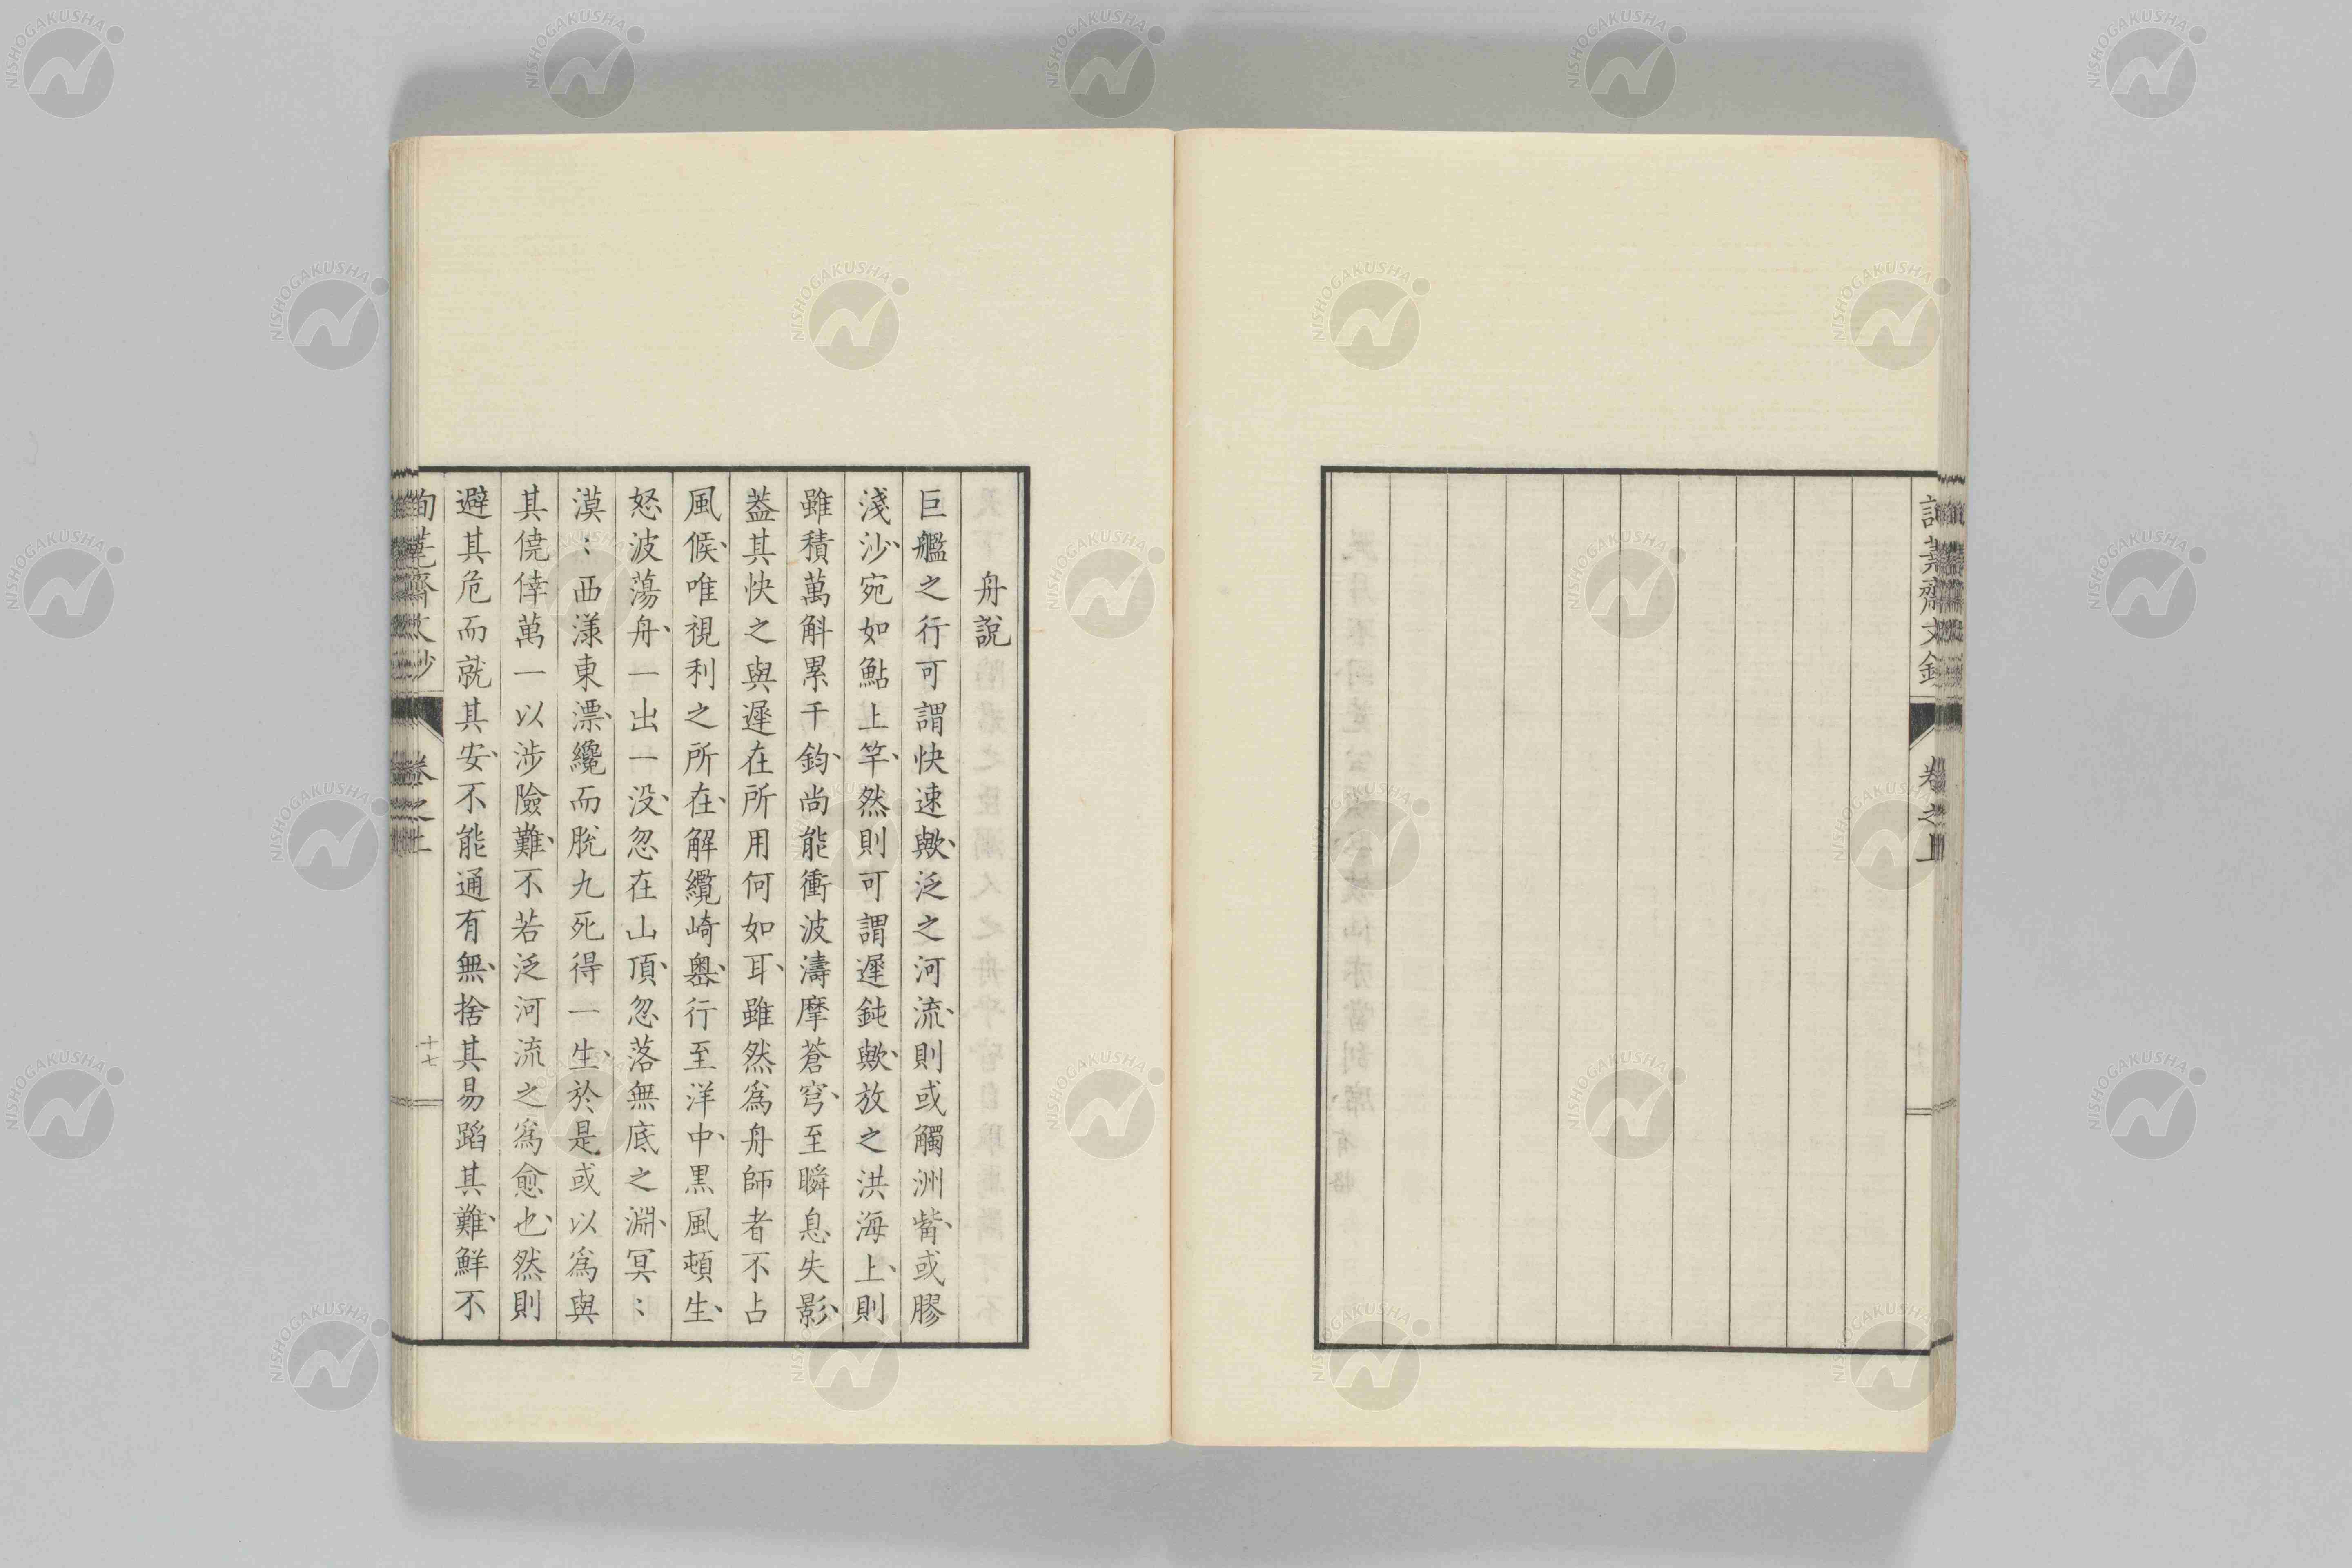 卷之上
舟說
巨艦之行可謂快速歟、泛之河流、則或觸洲觜、或膠
淺沙、宛如鮎上竿、然則可謂遲鈍歟、放之洪海上、則
雖積萬斛累千鈞、尚能衝波濤摩蒼穹、至瞬息失影、
蓋其快之與遲在所用何如耳、雖然爲舟師者不占
風候、唯視利之所在、解纜崎嶴、行至洋中、黑風頓生、
怒波蕩舟、一出一没、忽在山頂、忽落無底之淵、冥〻
漠〻西漾東漂、纔而脫九死得一生、於是或以爲與
其僥倖萬一以涉險難、不若泛河流之爲愈也、然則
避其危而就其安、不能通有無、捨其易蹈其難、鮮不
卷之上
十七
NISHOGAKUSHA